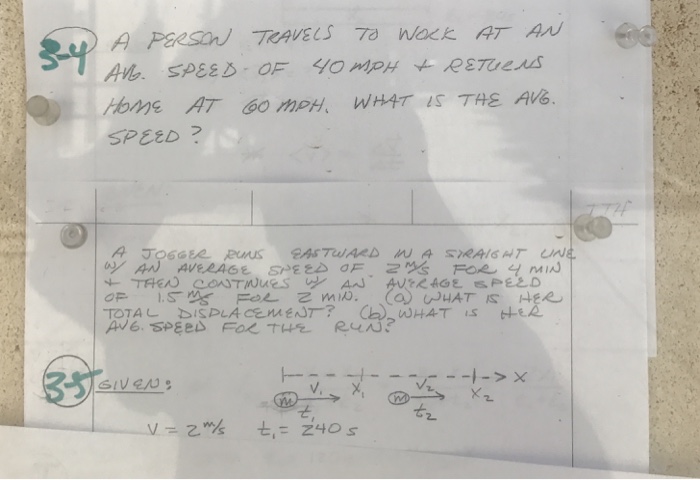 3-4 A PERSON TRAVELS TO WORK AT AN
AVG. SPEED OF 40 MPH + RETURNS
HOME AT 60 MPH. WHAT IS THE AVG.
SPEED?
A JOGGER RUNS EASTWARD IN A STRAIGHT LINE
W/ AN AVERAGE SPEED OF 2 m/s FOR 4 MIN
+ THEN CONTINUES W/ AN AVERAGE SPEED
OF 1.5 m/s FOR 2 MIN. (a) WHAT IS HER
TOTAL DISPLACEMENT? (b) WHAT IS HER
AVG. SPEED FOR THE RUN?
3-5 GIVEN:
X
V₁ X₁ V₂ X₂
m m
t₁ t₂
V = 2 m/s t₁ = 240 s